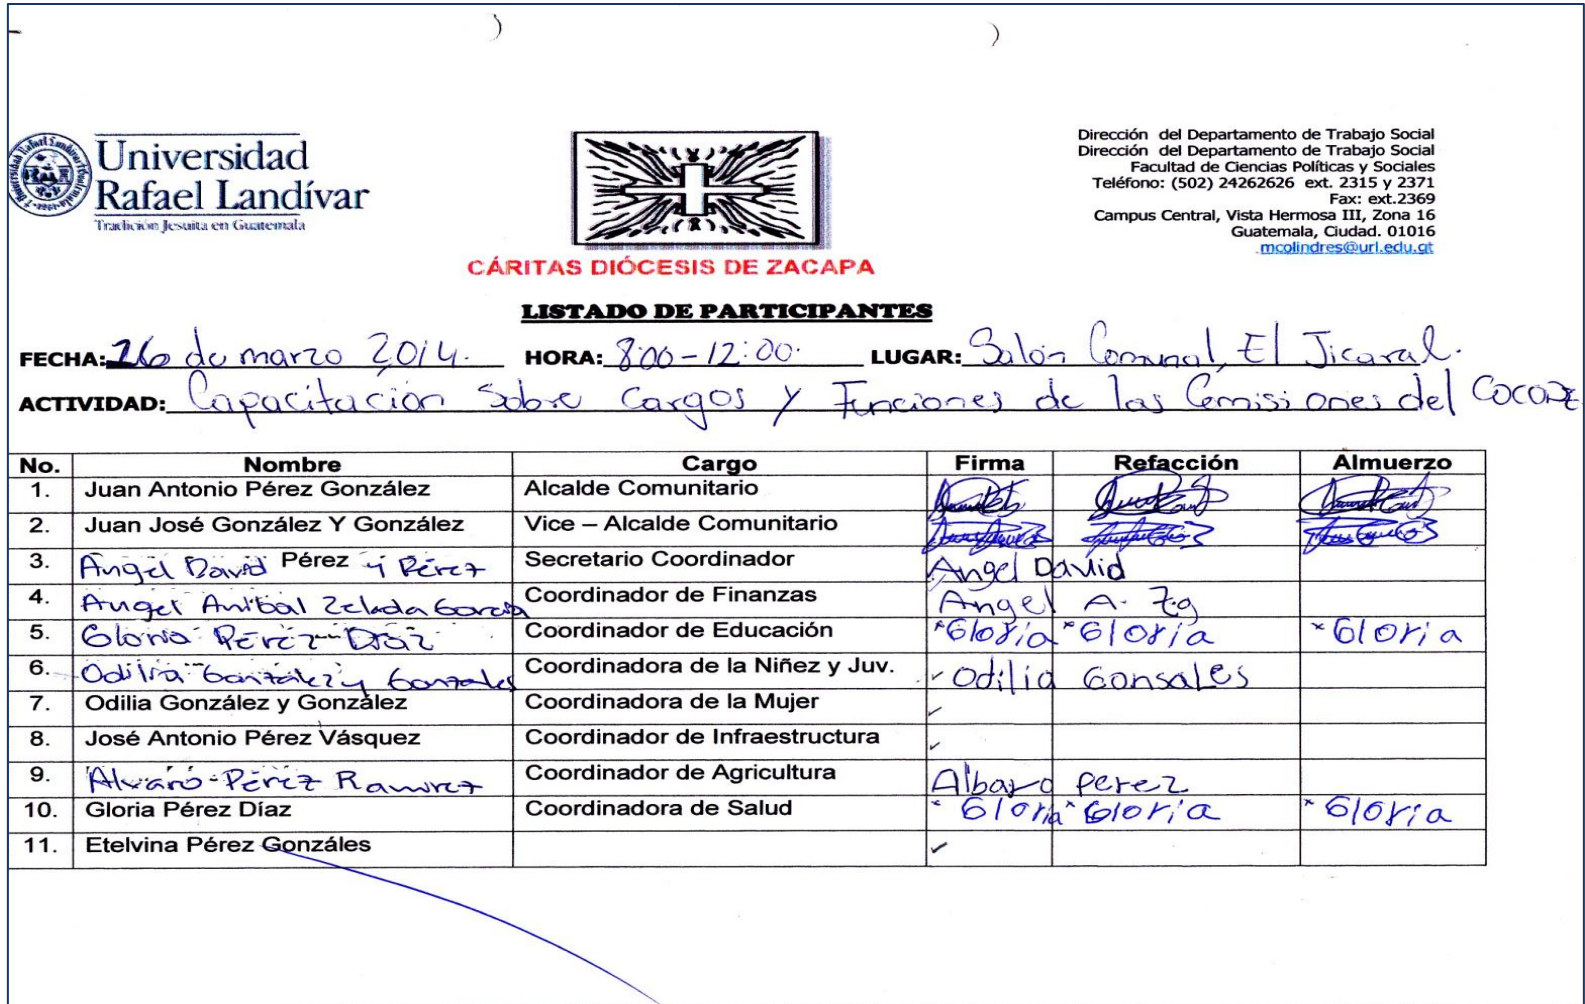 Universidad
Rafael Landívar
Tradición Jesuita en Guatemala
CÁRITAS DIÓCESIS DE ZACAPA
Dirección del Departamento de Trabajo Social
Dirección del Departamento de Trabajo Social
Facultad de Ciencias Políticas y Sociales
Teléfono: (502) 24262626 ext. 2315 y 2371
Fax: ext.2369
Campus Central, Vista Hermosa III, Zona 16
Guatemala, Ciudad. 01016
mcolindres@url.edu.gt
LISTADO DE PARTICIPANTES
FECHA: 26 de marzo 2,014. HORA: 8:00-12:00. LUGAR: Salón Comunal, El Jicaral.
ACTIVIDAD: Capacitación Sobre Cargos y Funciones de las Comisiones del COCODE
No. Nombre Cargo Firma Refacción Almuerzo
1. Juan Antonio Pérez González Alcalde Comunitario
2. Juan José González Y González Vice – Alcalde Comunitario
3. Angel David Pérez y Pérez Secretario Coordinador Angel David
4. Angel Anibal Zelada Garcia Coordinador de Finanzas Angel A. Zg
5. Gloria Pérez Díaz Coordinador de Educación Gloria Gloria Gloria
6. Odilia González y Gonzales Coordinadora de la Niñez y Juv. Odilia Gonsales
7. Odilia González y González Coordinadora de la Mujer
8. José Antonio Pérez Vásquez Coordinador de Infraestructura
9. Alvaro Pérez Ramirez Coordinador de Agricultura Albaro Perez
10. Gloria Pérez Díaz Coordinadora de Salud Gloria Gloria Gloria
11. Etelvina Pérez Gonzáles